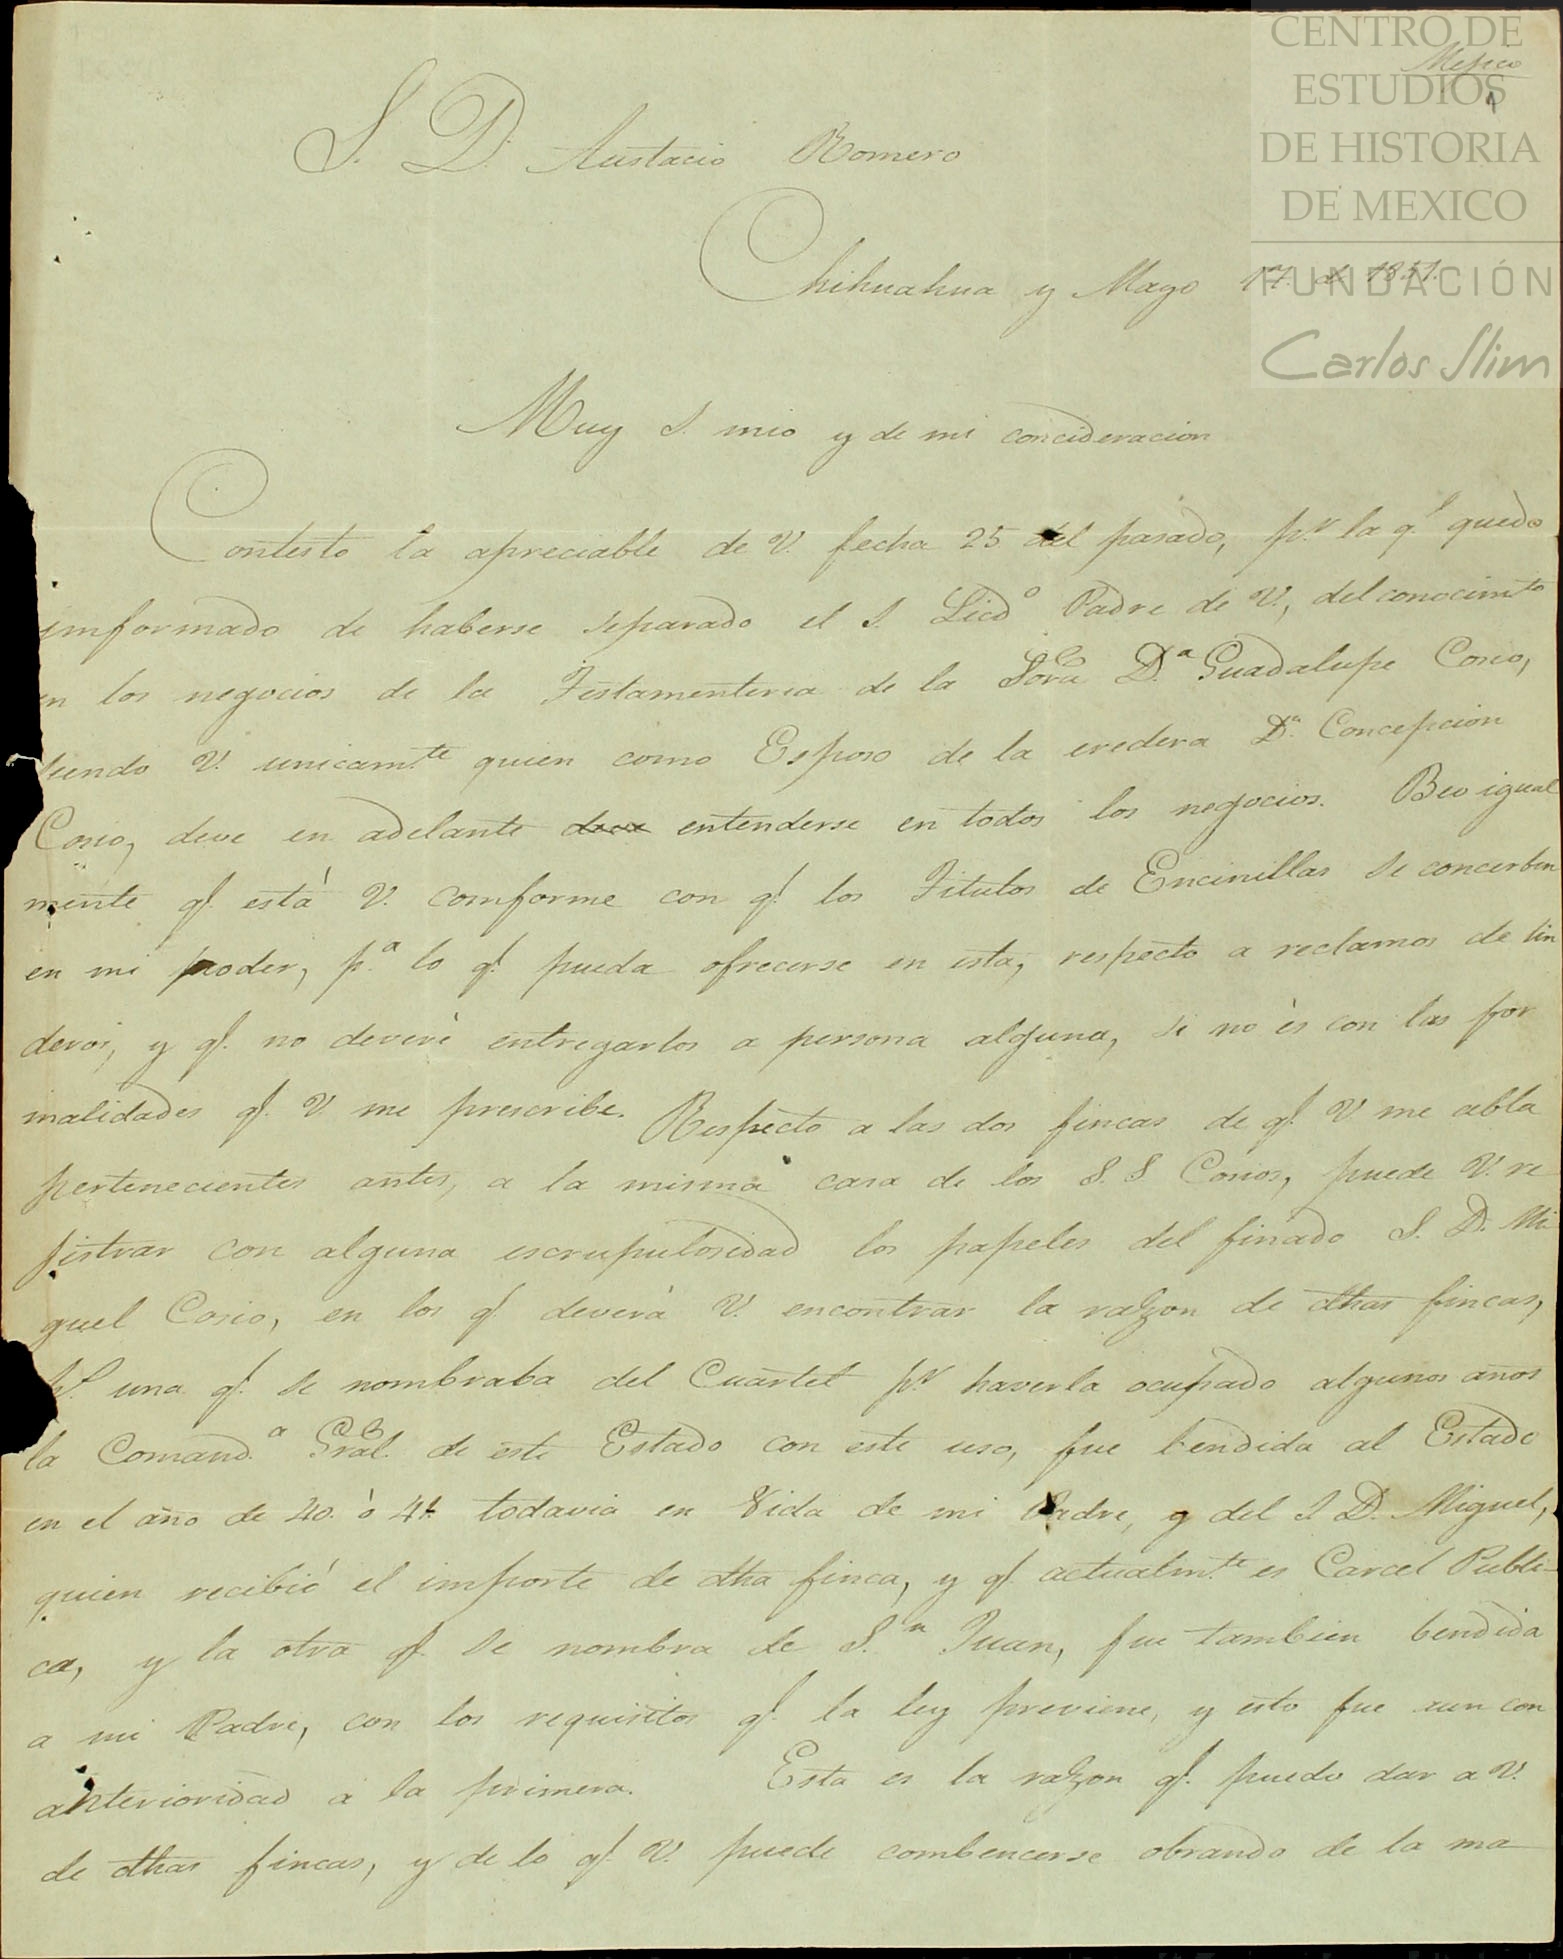 CENTRO DE
ESTUDIOS
DE HISTORIA
DE MEXICO
FUNDACIÓN
Carlos Slim
Mejico
S. D. Austacio Romero
Chihuahua y Mayo 17. de 1851.
Muy S. mio y de mi concideracion
Contesto la apreciable de V. fecha 25 del pasado, p.r la q.l quedo
imformado de haberse separado el S. Licd.o Padre de V., del conocim.to
en los negocios de la Testamenteria de la Sora D.a Guadalupe Cosio,
siendo V. unicam.te quien como Esposo de la eredera D.a Concepcion
Cosio, deve en adelante entenderse en todos los negocios. Beo igual
mente q.e está V. comforme con q.e los Titulos de Encinillas se concerben
en mi poder, p.a lo q.e pueda ofrecerse en esta, respecto a reclamos de lin
deros, y q.e no deveré entregarlos a persona alguna, si no és con las for
malidades q.e V. me prescribe. Respecto a las dos fincas de q.e V. me abla
pertenecientes antes, a la misma casa de los S. S Cosios, puede V. re
jistrar con alguna escrupulosidad los papeles del finado S. D. Mi
guel Cosio, en los q.e deverá V. encontrar la razon de dhas fincas,
una q.e se nombraba del Cuartel p.r haverla ocupado algunos años
la Comand.a Gral. de este Estado con este uso, fue bendida al Estado
en el año de 40. ó 41. todavia en vida de mi Padre, y del S D. Miguel,
quien recibió el importe de dha finca, y q.e actualm.te es Carcel Publi-
ca, y la otra q.e se nombra de S.n Juan, fue tambien bendida
a mi Padre, con los requisitos q.e la ley previene, y esto fue aun con
anterioridad a la primera. Esta es la razon q.e puedo dar a V.
de dhas fincas, y de lo q.e V. puede combencerse obrando de la ma